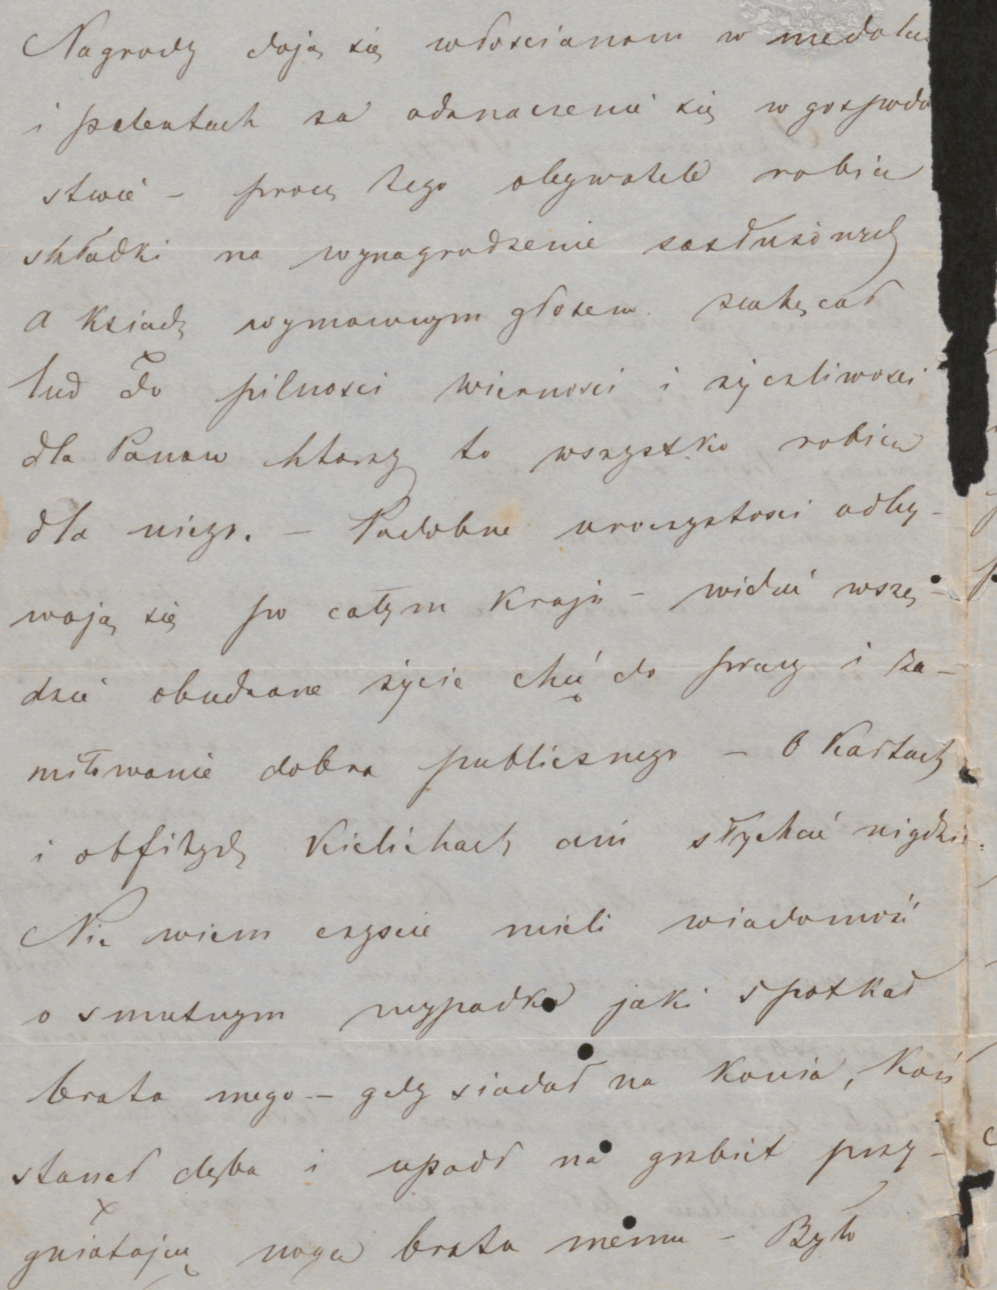 Nagrody dają się włoscianom w medalu
i patentach za odznaczenie się w gospoda
stwie – procz tego obywatele robią
składki na wynagrodzenie zasłużonych
a Ksiądz wymownym głosem zachęcał
lud do pilnosci wiernosci i życzliwosci
dla Panow ktorzy to wszystko robią
dla niego. – Podobne uroczystosci odby-
wają się po całym Kraju – widać wszę-
dzie obudzone życie chęć do pracy i za-
miłowanie dobra publicznego – O Kartach
i obfitych Kielichach ani słychać nigdzie.
Nie wiem czyscie mieli wiadomość
o smutnym wypadku jaki spotkał
brata mego – gdy siadał na Konia, Koń
stanął dęba i upadł na grzbiet przy-
gniatając nogę brata memu – Było